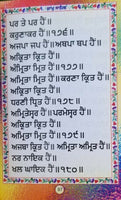 ਪਰ ਤੇ ਪਰ ਹੈਂ॥
ਕਰੁਣਾਕਰ ਹੈਂ॥੧੭੬॥
ਅਜਪਾ ਜਪ ਹੈਂ॥ਅਥਪਾ ਥਪ ਹੈਂ॥
ਅਕ੍ਰਿਤਾ ਕ੍ਰਿਤ ਹੈਂ॥
ਅਮ੍ਰਿਤਾ ਮ੍ਰਿਤ ਹੈਂ॥੧੭੭॥
ਅਮ੍ਰਿਤਾ ਮ੍ਰਿਤ ਹੈਂ॥ਕਰਣਾ ਕ੍ਰਿਤ ਹੈਂ॥
ਅਕ੍ਰਿਤਾ ਕ੍ਰਿਤ ਹੈਂ॥
ਧਰਣੀ ਧ੍ਰਿਤ ਹੈਂ॥੧੭੮॥
ਅਮ੍ਰਿਤੇਸ੍ਵਰ ਹੈਂ॥ਪਰਮੇਸ੍ਵਰ ਹੈਂ॥
ਅਕ੍ਰਿਤਾ ਕ੍ਰਿਤ ਹੈਂ॥
ਅਮ੍ਰਿਤਾ ਮ੍ਰਿਤ ਹੈਂ॥੧੭੯॥
ਅਜਬਾ ਕ੍ਰਿਤ ਹੈਂ॥ਅਮ੍ਰਿਤਾ ਅਮ੍ਰਿਤ ਹੈਂ॥
ਨਰ ਨਾਇਕ ਹੈਂ॥
ਖਲ ਘਾਇਕ ਹੈਂ॥੧੮੦॥